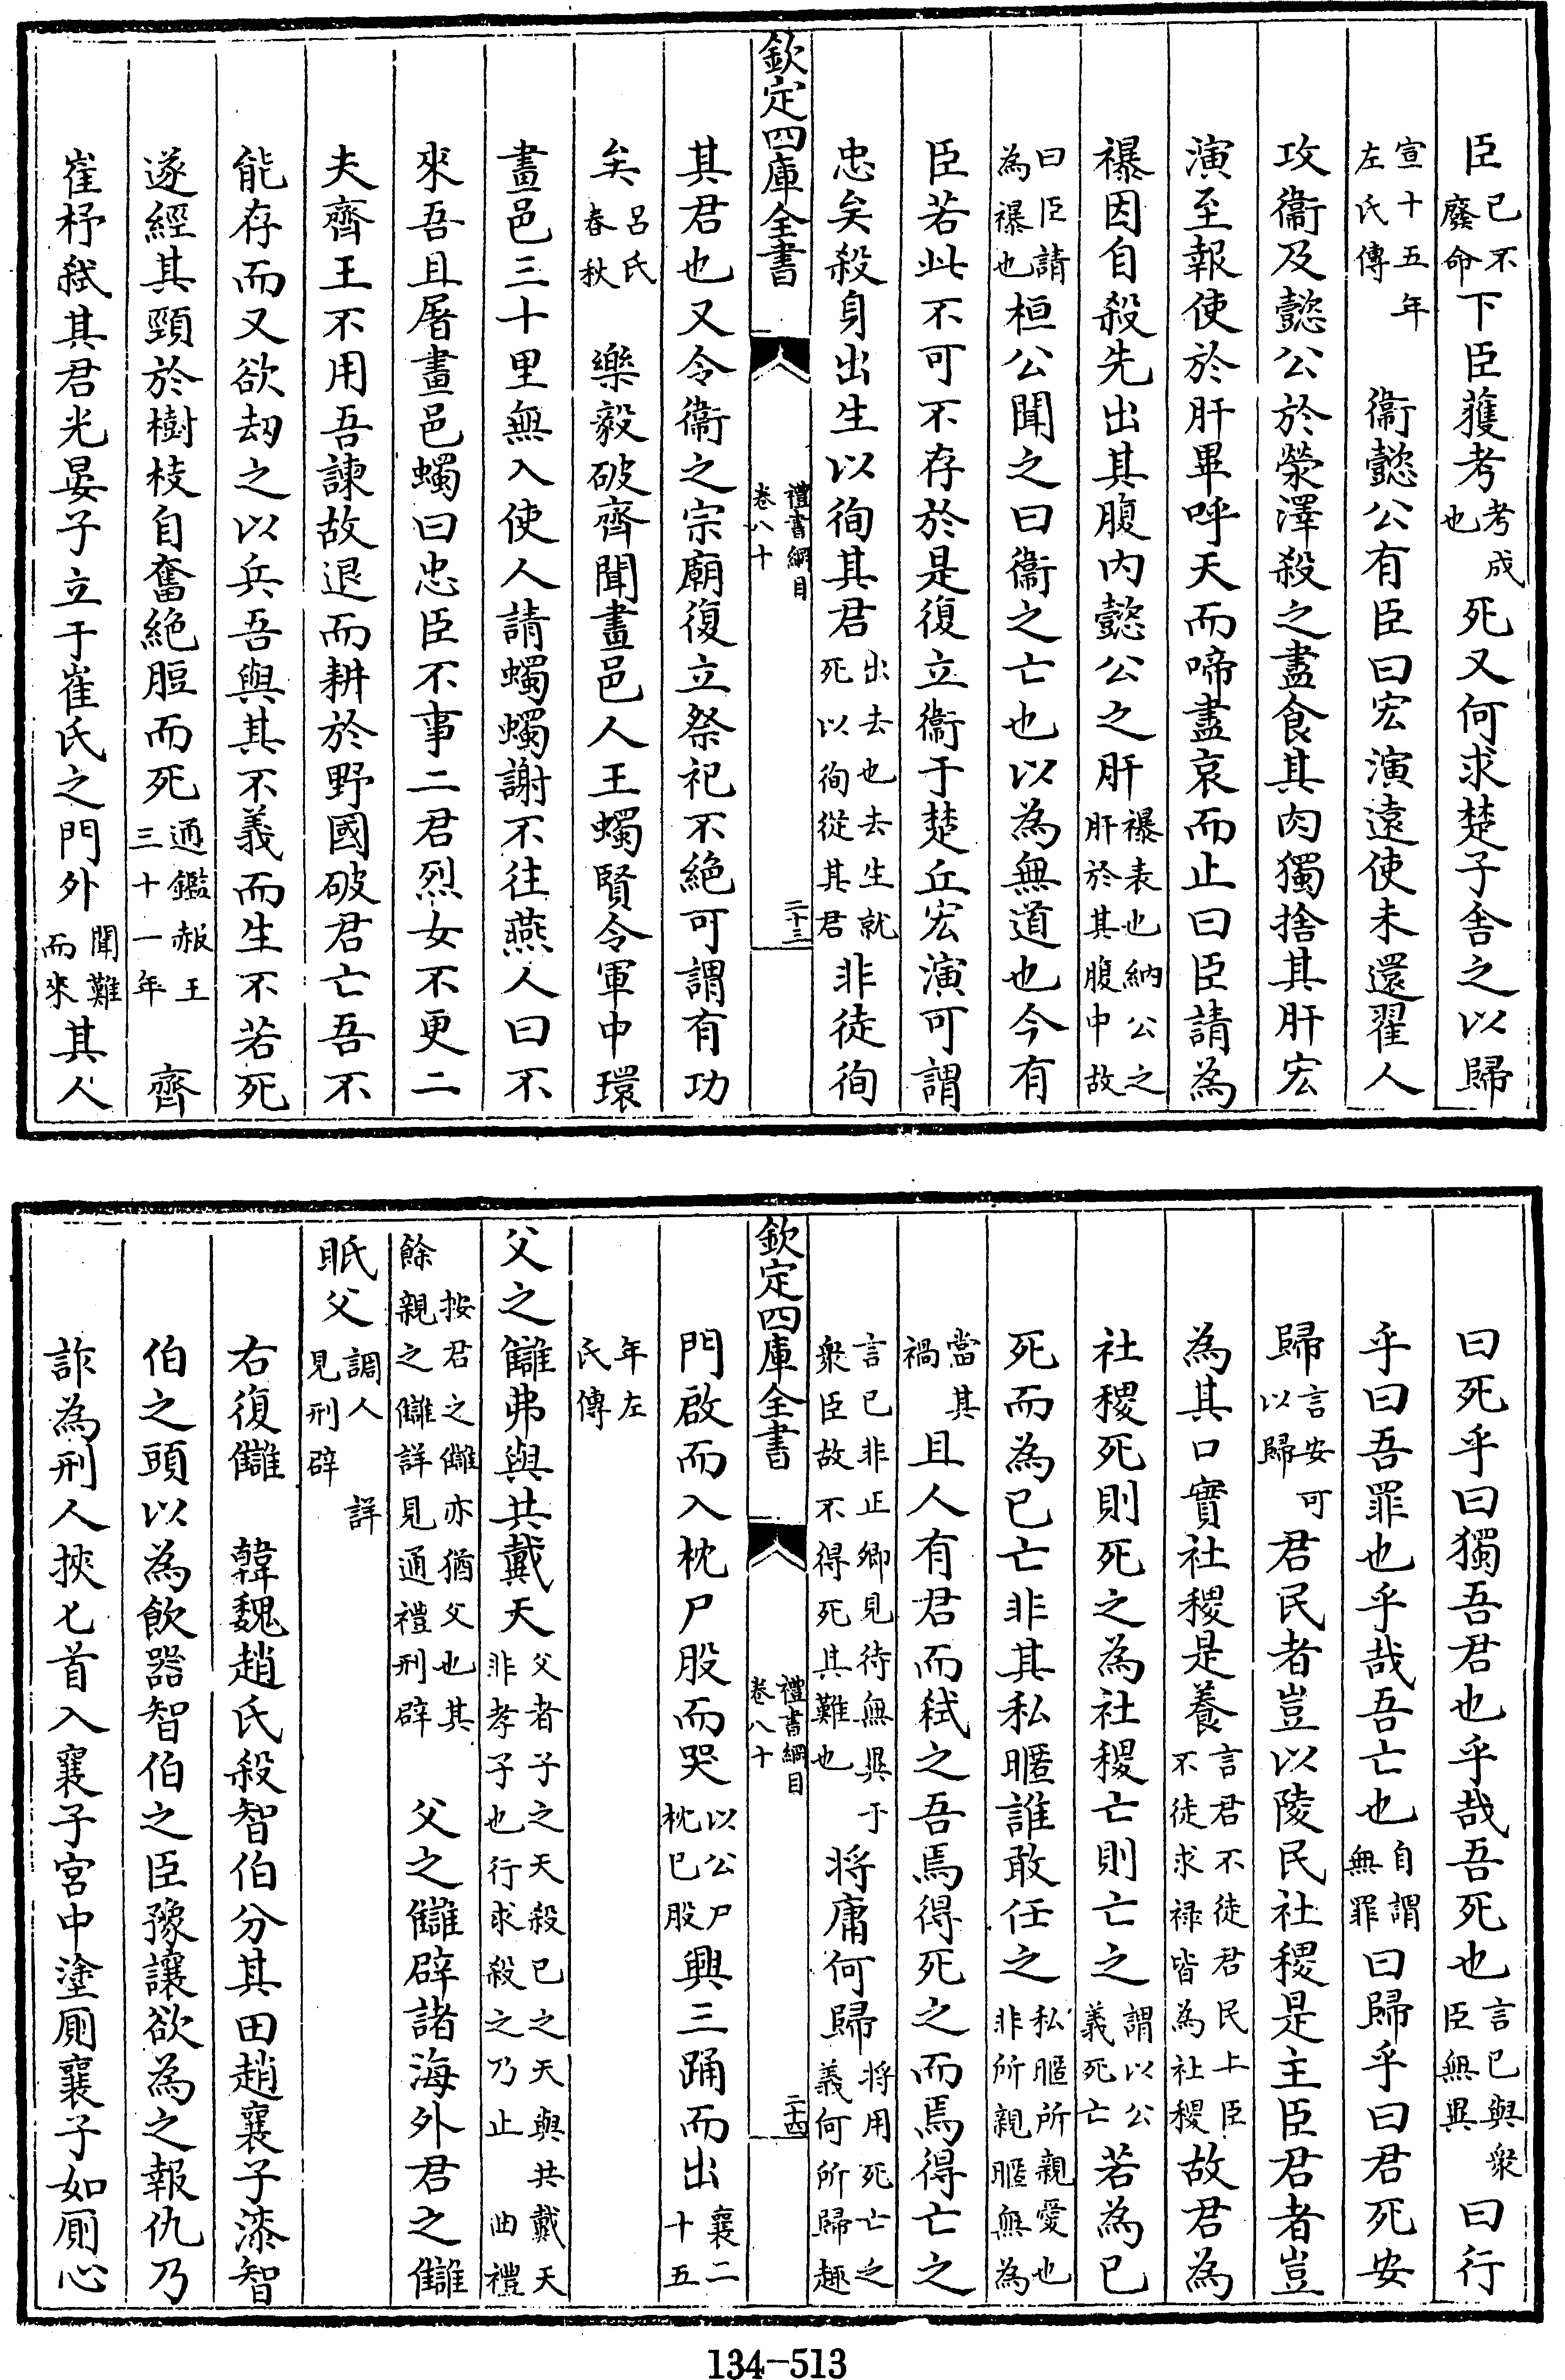 臣已不廢命下臣獲考考成也死又何求楚子舍之以歸
宣十五年左氏傳　衞懿公有臣曰宏演遠使未還翟人
攻衞及懿公於滎澤殺之盡食其肉獨捨其肝宏
演至報使於肝畢呼天而啼盡哀而止曰臣請為
襮因自殺先出其腹内懿公之肝襮表也納公之肝於其腹中故
曰臣請為襮也桓公聞之曰衞之亡也以為無道也今有
臣若此不可不存於是復立衞于楚丘宏演可謂
忠矣殺身出生以徇其君出去也去生就死以徇從其君非徒徇
欽定四庫全書　禮書綱目卷八十　二十三
其君也又令衞之宗廟復立祭祀不絶可謂有功
矣呂氏春秋　樂毅破齊聞畫邑人王蠋賢令軍中環
畫邑三十里無入使人請蠋蠋謝不往燕人曰不
來吾且屠畫邑蠋曰忠臣不事二君烈女不更二
夫齊王不用吾諫故退而耕於野國破君亡吾不
能存而又欲刼之以兵吾與其不義而生不若死
遂經其頸於樹枝自奮絶脰而死通鑑赧王三十一年　齊
崔杼弑其君光晏子立于崔氏之門外聞難而來其人
曰死乎曰獨吾君也乎哉吾死也言已與衆臣無異曰行
乎曰吾罪也乎哉吾亡也自謂無罪曰歸乎曰君死安
歸言安可以歸君民者豈以陵民社稷是主臣君者豈
為其口實社稷是養言君不徒君民上臣不徒求禄皆為社稷故君為
社稷死則死之為社稷亡則亡之謂以公義死亡若為已
死而為已亡非其私暱誰敢任之私暱所親愛也非所親暱無為
當其禍　且人有君而弑之吾焉得死之而焉得亡之
言已非正卿見待無異于衆臣故不得死其難也將庸何歸將用死亡之義何所歸趣
欽定四庫全書　禮書綱目卷八十　二十四
門啟而入枕尸股而哭以公尸枕已股興三踊而出襄二十五
年左氏傳
父之讎弗與共戴天父者子之天殺已之天與共戴天非孝子也行求殺之乃止　曲禮
按君之讎亦猶父也其餘親之讎詳見通禮刑辟　父之讎辟諸海外君之讎
眡父調人　詳見刑辟
右復讎　韓魏趙氏殺智伯分其田趙襄子漆智
伯之頭以為飲器智伯之臣豫讓欲為之報仇乃
詐為刑人挾匕首入襄子宮中塗厠襄子如厠心
134-513